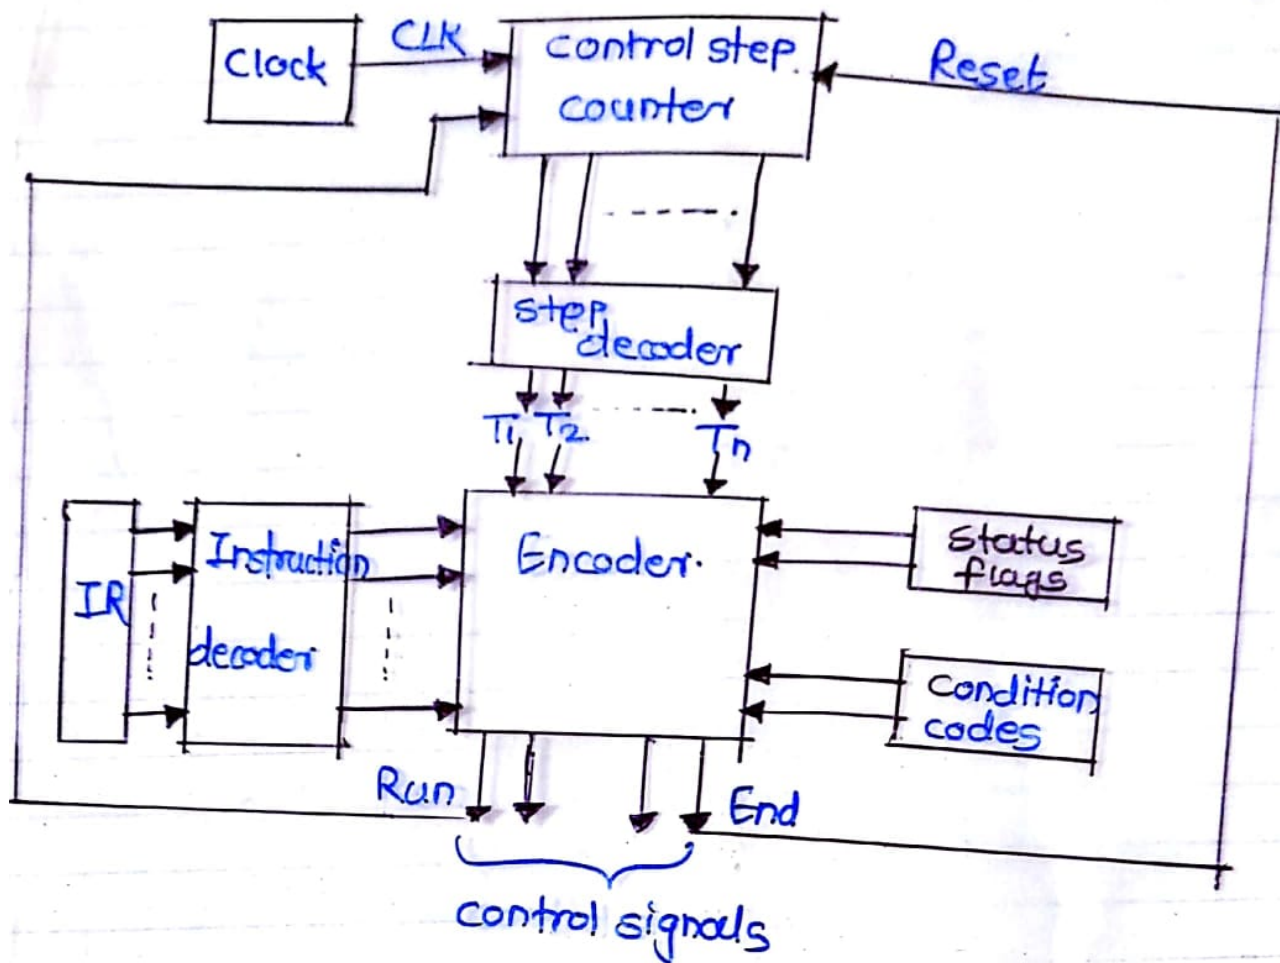 Clock
CLK
control step.
counter
Reset
step
decoder
T1 T2. Tn
IR
Instruction
decoder
Encoder.
Status
flags
Condition
codes
Run
End
control signals